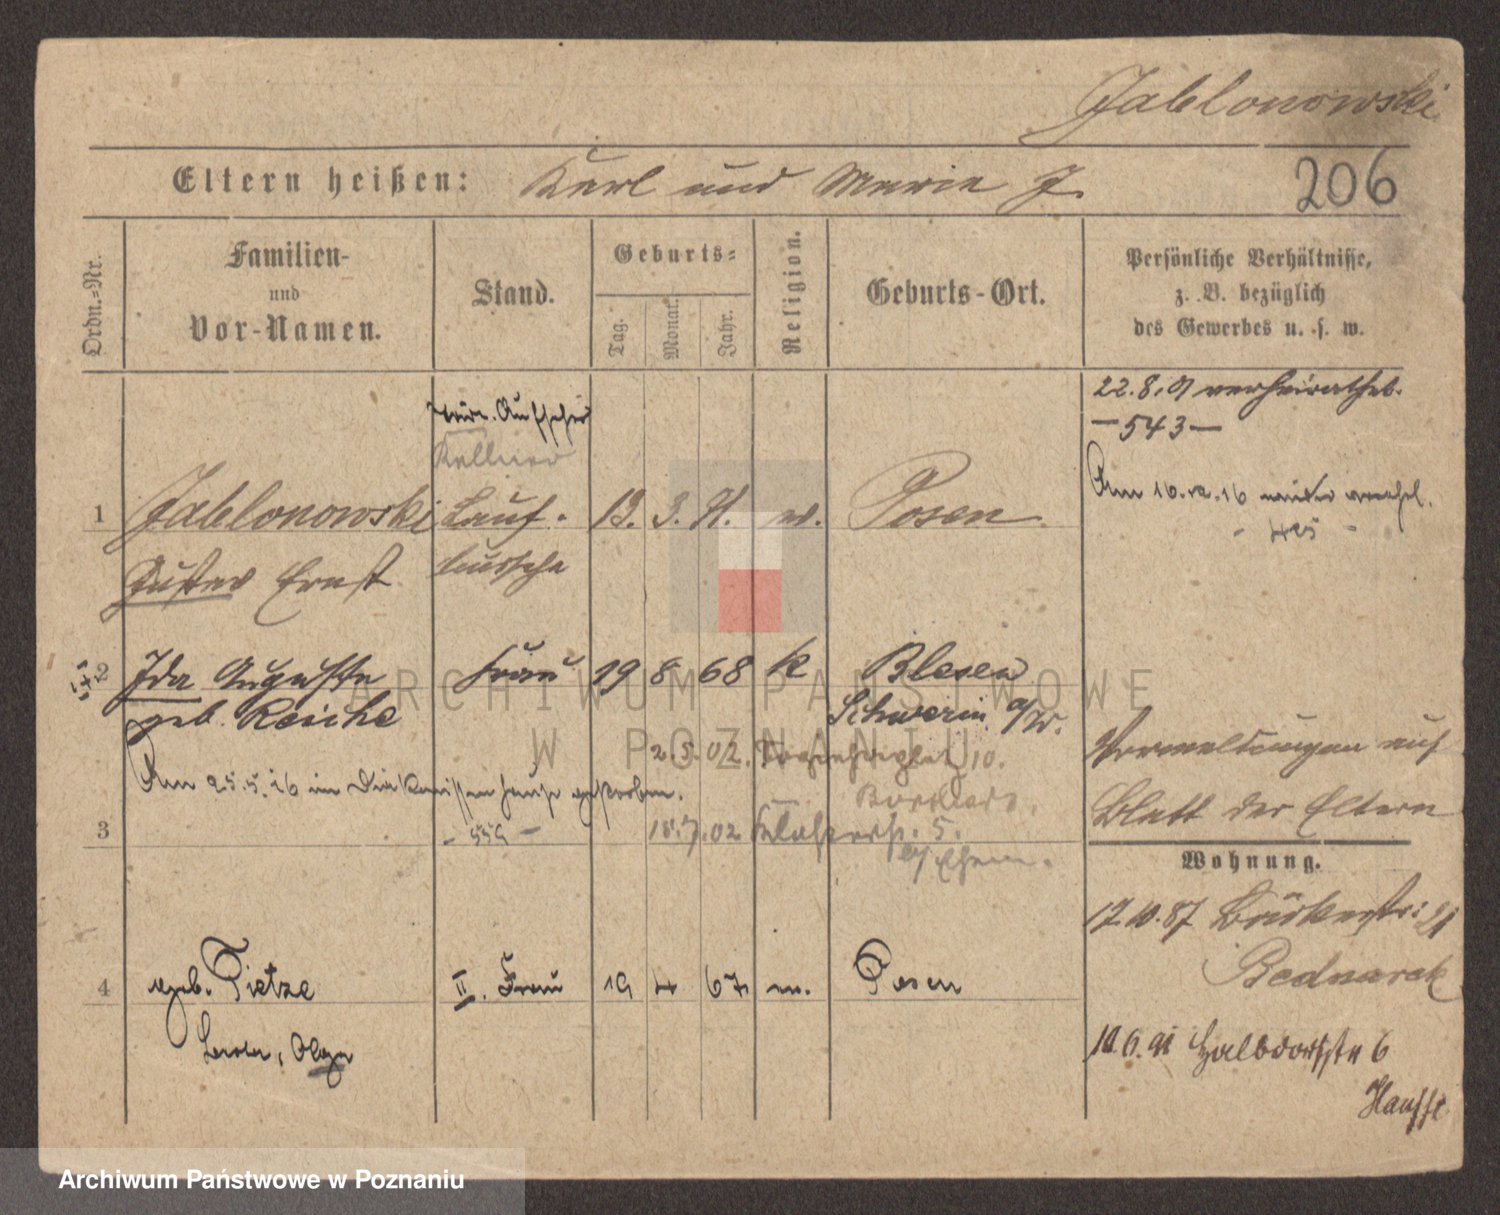 Jablonowski
Eltern heißen: Karl und Marie J.
206
Ordn.=Nr.
Familien-
und
Vor-Namen.
Stand.
Geburts=
Tag.
Monat.
Jahr.
Religion.
Geburts-Ort.
Persönliche Verhältnisse,
z. B. bezüglich
des Gewerbes u. s. w.
22.8.91 verheirathet.
—543—
Aufseher
Kellner
1 Jablonowski Lauf- 13. 3. 71. ev. Posen.
bursche
Gustav Ernst
Am 16.12.16 wieder verehel.
2 Ida Auguste Frau 19 8 68 k Blesen
geb. Reiche Schwerin a/W.
2.5.02. 10.
Am 25.5.16 im Diakonissenhause gestorben.
- 559 -
3 18.7.02 Klosterstr. 5.
Vermerkungen auf
Blatt der Eltern
Wohnung.
17.10.87 Bäckerstr: 21
Bednarek
4 geb. Tietze II. Frau 19 4 67 ev. Posen
Olga
10.6.91 Halbdorfstr 6
Hauffe
ARCHIWUM PAŃSTWOWE
W POZNANIU
Archiwum Państwowe w Poznaniu